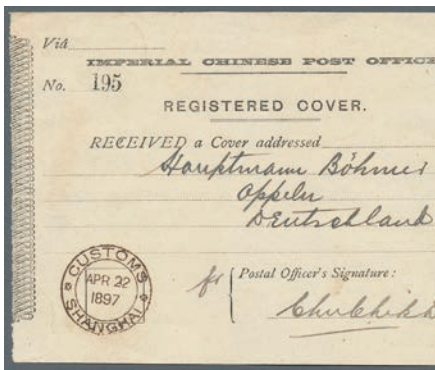 Viâ
IMPERIAL CHINESE POST OFFICE
No. 195
REGISTERED COVER.
RECEIVED a Cover addressed
Hauptmann Böhmer
Oppeln
Deutschland
CUSTOMS
APR 22
1897
SHANGHAI
for { Postal Officer's Signature: